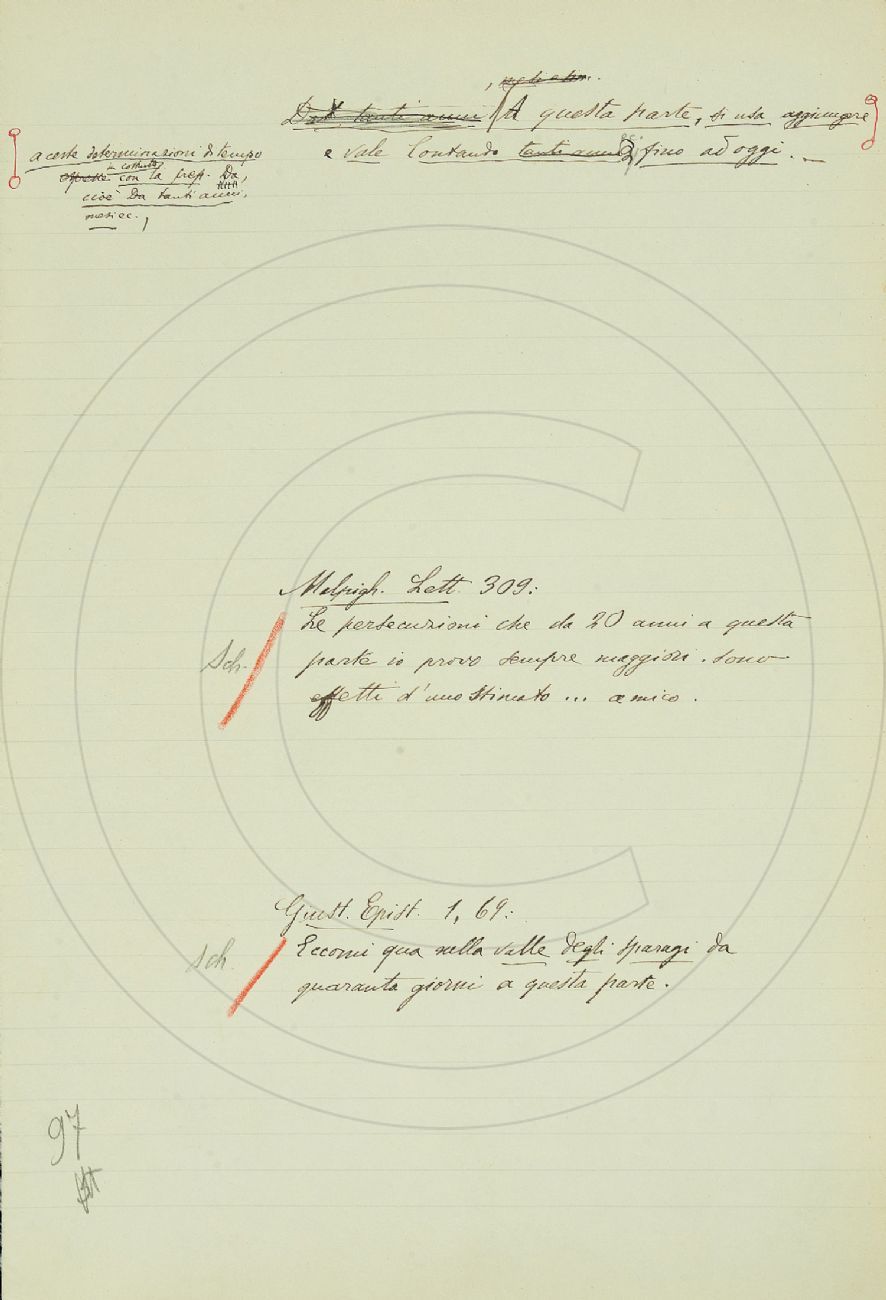 Da tanti anni A questa parte, si usa aggiungere
e vale Contando tanti anni fino ad oggi.
a certe determinazioni di tempo
costruite
espresse con la prep. Da,
cioè Da tanti anni,
mesi ec.,
Malpigh. Lett. 309:
Le persecuzioni che da 20 anni a questa
Sch.
parte io provo sempre maggiori. sono
effetti d'uno stimato ... amico.
Giust. Epist. 1, 69:
Sch.
Eccomi qua nella valle degli sparagi da
quaranta giorni a questa parte.
97